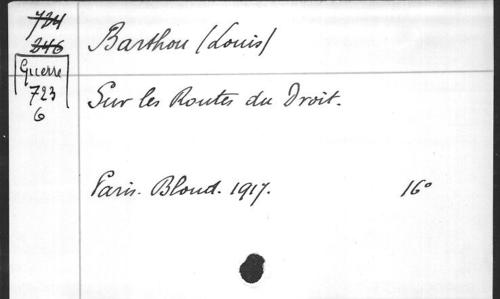 724
246
Guerre
723
6
Barthou (Louis)
Sur les Routes du Droit.
Paris. Bloud. 1917. 16°